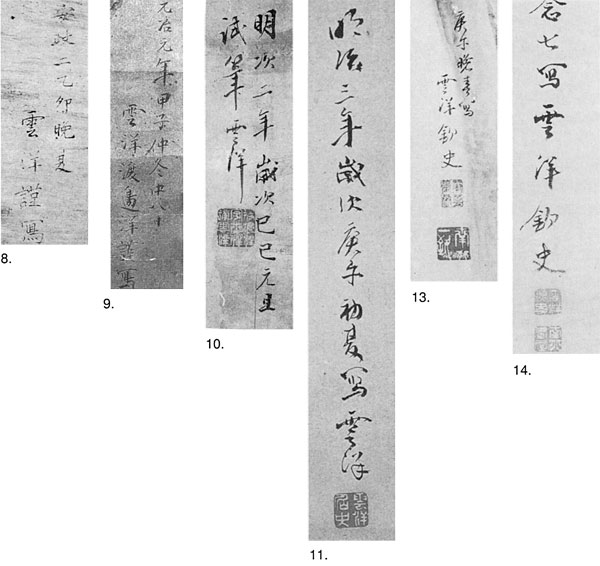 安政二乙卯晩夏
雲洋謹寫
8.
元治元年甲子仲冬中八日
雲洋渡邊洋謹寫
9.
明次二年歳次己巳元旦
試筆雲洋
10.
明治三年歳次庚午初夏寫雲洋
11.
庚午晩春寫
雲洋釣史
13.
念七寫雲洋釣史
14.